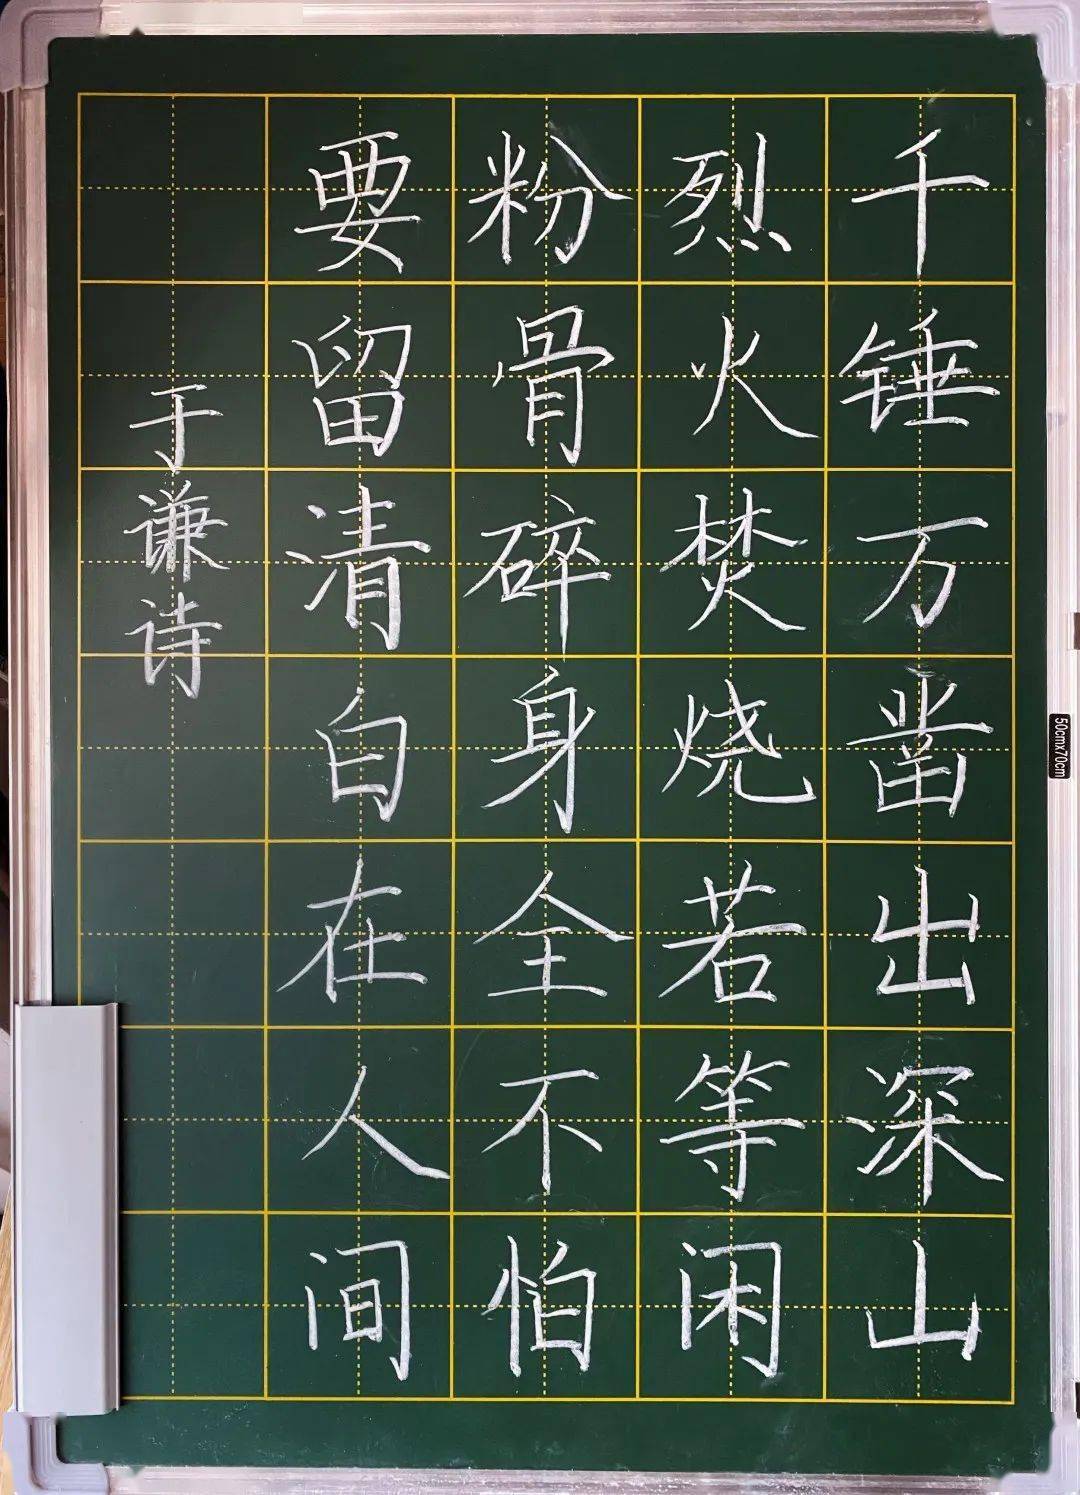 千锤万凿出深山
烈火焚烧若等闲
粉骨碎身全不怕
要留清白在人间
于谦诗
50cmx70cm